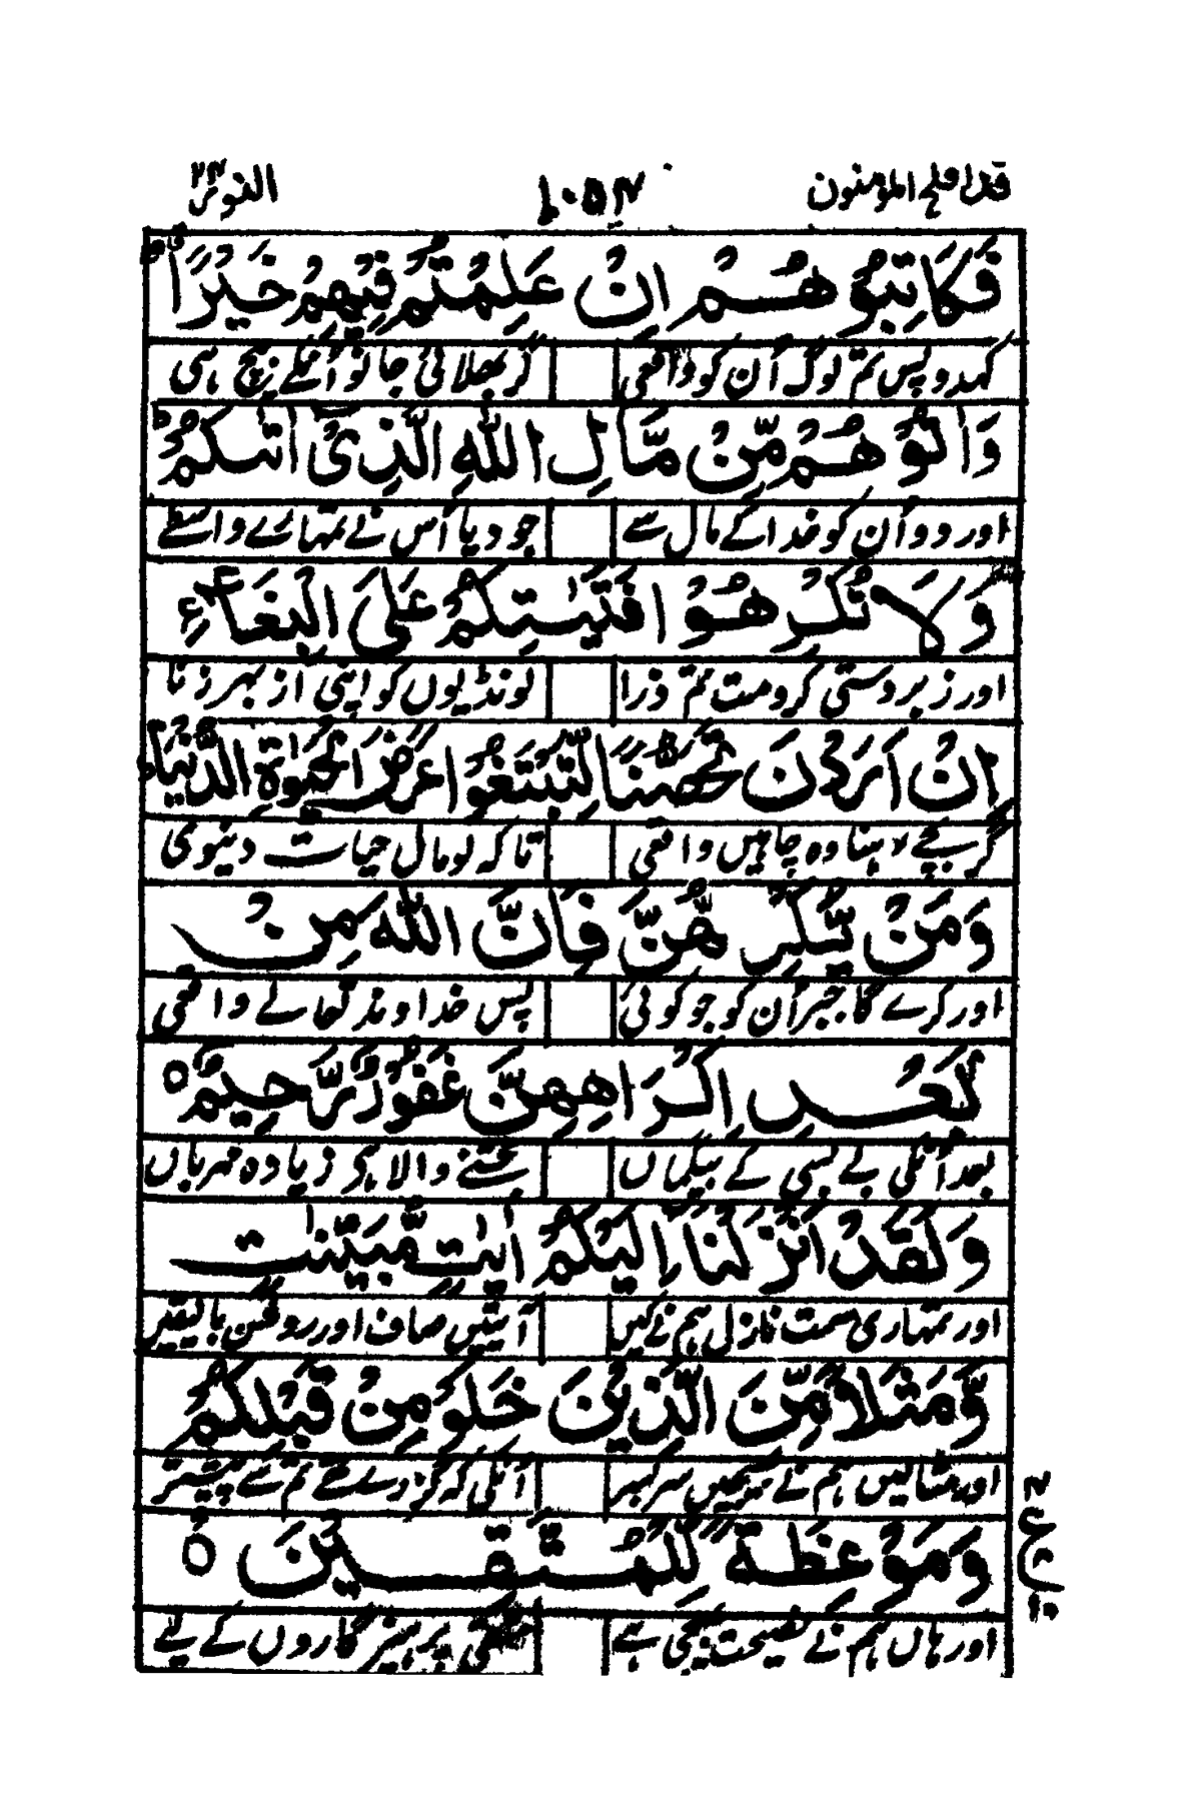 قد افلح المؤمنون ۱۰۵۴ النور ۲۴
فَكَاتِبُوْهُمْ اِنْ عَلِمْتُمْ فِيْهِمْ خَيْرًا ق ط
کہدو پس تم لوگ اُن کو واقعی گر بھلائی جانو اُنکے بیچ ہی
وَاٰتُوْهُمْ مِّنْ مَّالِ اللّٰهِ الَّذِىْٓ اٰتٰىكُمْ ط
اور دو اُن کو خدا کے مال سے جو دیا اُس نے تمہارے واسطے
وَلَا تُكْرِهُوْا فَتَيٰتِكُمْ عَلَى الْبِغَآءِ
اور زبردستی کرو مت تم ذرا لونڈیوں کو اپنی از بہر زنا
اِنْ اَرَدْنَ تَحَصُّنًا لِّتَبْتَغُوْا عَرَضَ الْحَيٰوةِ الدُّنْيَا ط
گر بچے رہنا وہ چاہیں واقعی تا کہ لو مال حیات دنیوی
وَمَنْ يُّكْرِهْهُّنَّ فَاِنَّ اللّٰهَ مِنْ
اور کرے گا جبر اُن کو جو کوئی پس خداوند تعالے واقعی
بَعْدِ اِكْرَاهِهِنَّ غَفُوْرٌ رَّحِيْمٌ ○
بعد اُنکی بے بسی کے بیگماں بخشنے والا ہی زیادہ مہرباں
وَلَقَدْ اَنْزَلْنَآ اِلَيْكُمْ اٰيٰتٍ مُّبَيِّنٰتٍ
اور تمہاری سمت نازل ہم نے کیں آیتیں صاف اور روشن بالیقیں
وَّمَثَلًا مِّنَ الَّذِيْنَ خَلَوْا مِنْ قَبْلِكُمْ
اور مثالیں ہم نے بھیجیں سر بسر اُنکی کہ گزرے تھے تم سے پیشتر
وَمَوْعِظَةً لِّلْمُتَّقِيْنَ ○
۴ ع ۱۰
اور ہاں ہم نے نصیحت بھیجی ہے پرہیزگاروں کے لیے